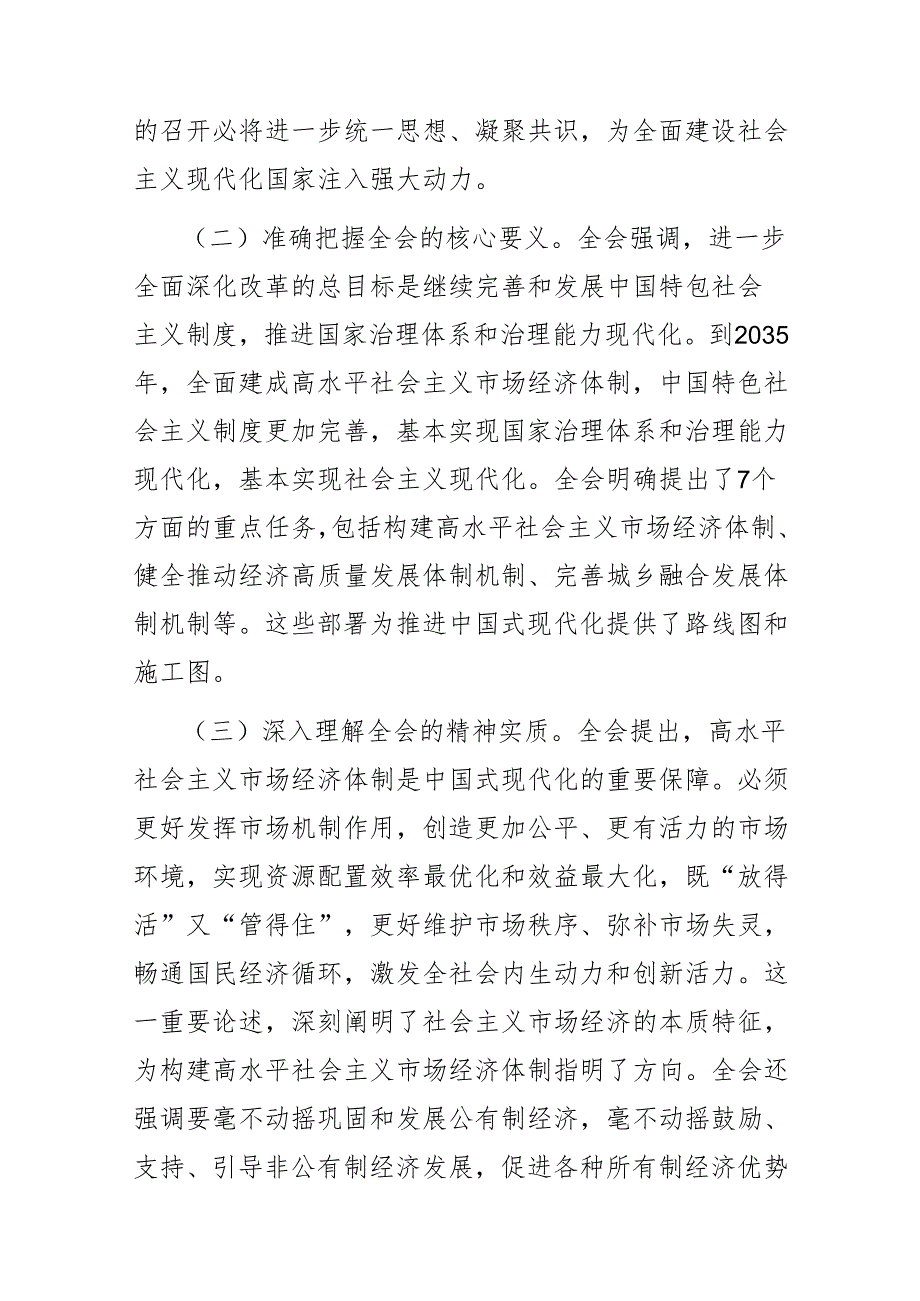 的召开必将进一步统一思想、凝聚共识，为全面建设社会
主义现代化国家注入强大动力。
（二）准确把握全会的核心要义。全会强调，进一步
全面深化改革的总目标是继续完善和发展中国特包社会
主义制度，推进国家治理体系和治理能力现代化。到2035
年，全面建成高水平社会主义市场经济体制，中国特色社
会主义制度更加完善，基本实现国家治理体系和治理能力
现代化，基本实现社会主义现代化。全会明确提出了7个
方面的重点任务，包括构建高水平社会主义市场经济体制、
健全推动经济高质量发展体制机制、完善城乡融合发展体
制机制等。这些部署为推进中国式现代化提供了路线图和
施工图。
（三）深入理解全会的精神实质。全会提出，高水平
社会主义市场经济体制是中国式现代化的重要保障。必须
更好发挥市场机制作用，创造更加公平、更有活力的市场
环境，实现资源配置效率最优化和效益最大化，既“放得
活”又“管得住”，更好维护市场秩序、弥补市场失灵，
畅通国民经济循环，激发全社会内生动力和创新活力。这
一重要论述，深刻阐明了社会主义市场经济的本质特征，
为构建高水平社会主义市场经济体制指明了方向。全会还
强调要毫不动摇巩固和发展公有制经济，毫不动摇鼓励、
支持、引导非公有制经济发展，促进各种所有制经济优势